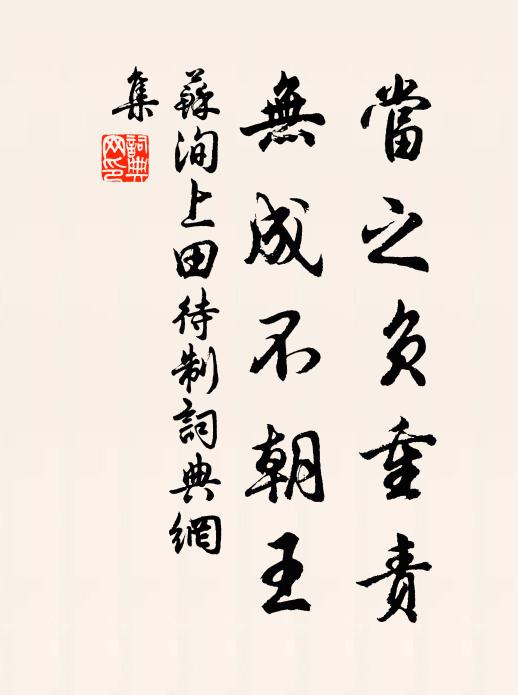 當之負重責
無成不朝王
蘇洵上田待制詞典網
集
詞典
網印